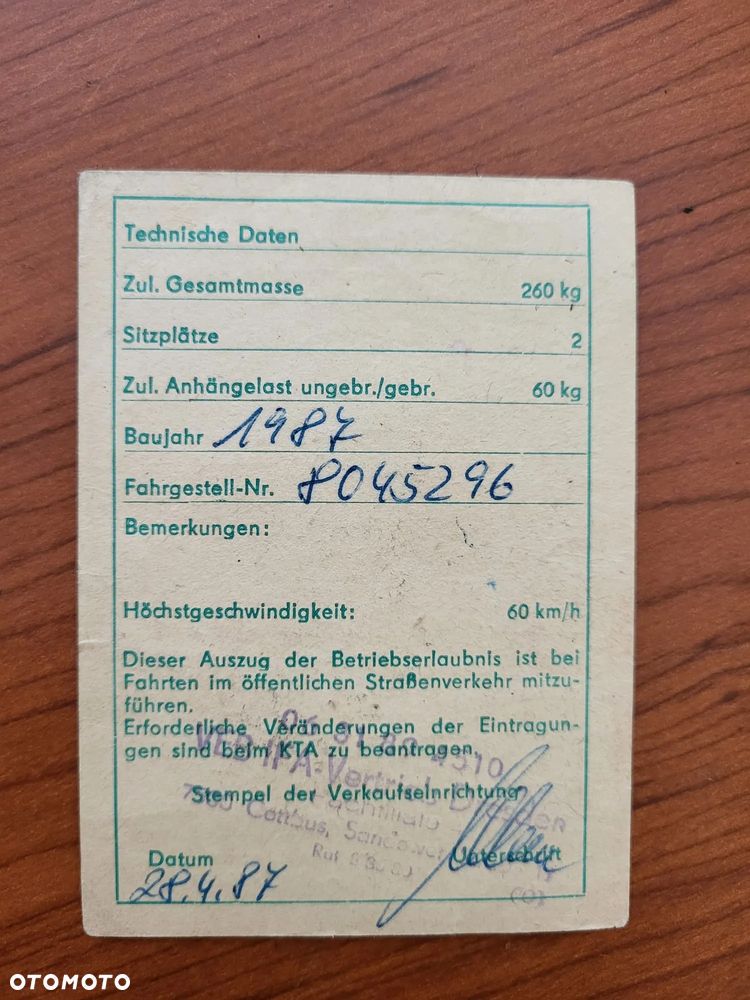 Technische Daten
Zul. Gesamtmasse 260 kg
Sitzplätze 2
Zul. Anhängelast ungebr./gebr. 60 kg
Baujahr 1987
Fahrgestell-Nr. 8045296
Bemerkungen:
Höchstgeschwindigkeit: 60 km/h
Dieser Auszug der Betriebserlaubnis ist bei
Fahrten im öffentlichen Straßenverkehr mitzu-
führen.
Erforderliche Veränderungen der Eintragun-
gen sind beim KTA zu beantragen.
VEB IFA-Vertrieb Dresden
Stempel der Verkaufseinrichtung
Cottbus,
Ruf
Datum Unterschrift
28.4.87
OTOMOTO